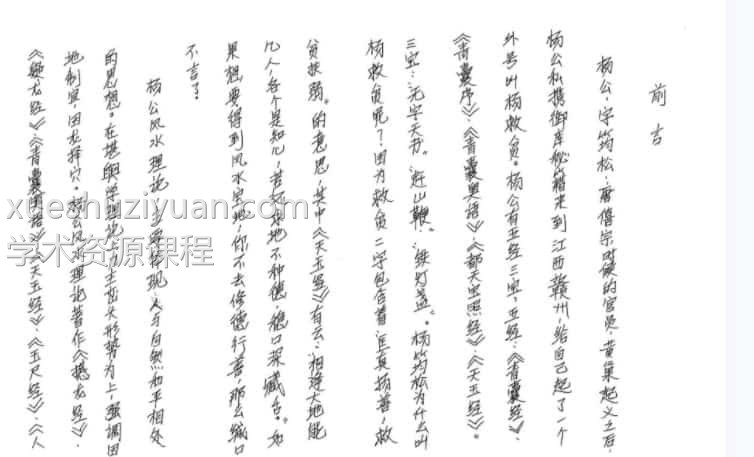 前言
杨公，字筠松，唐僖宗时候的官员，黄巢起义之后，
杨公私携御库秘籍来到江西赣州，给自己起了一个
外号叫杨救贫。杨公有五经三宝，五经：《青囊经》、
《青囊序》、《青囊奥语》、《都天宝照经》、《天玉经》。
三宝：无字天书。赶山鞭。绿灯盏。杨筠松为什么叫
杨救贫呢？因为救贫二字包含着：匡真扬善，救
贫扶弱。的意思，其中《天玉经》有云：相逢大地能
几人，各个是知心，若还求地不种德，稳口深藏舌。如
果想要得到风水宝地，你不去修德行善，那么缄口
不言了。
杨公风水理论，主要体现人与自然和平相处
的思想。在堪舆学理论上，主峦头形势为上，强调因
地制宜，因龙择穴。杨公风水理论著作《撼龙经》、
《疑龙经》、《青囊奥语》、《天玉经》、《玉尺经》、《人
xueshuziyuan.com
学术资源课程